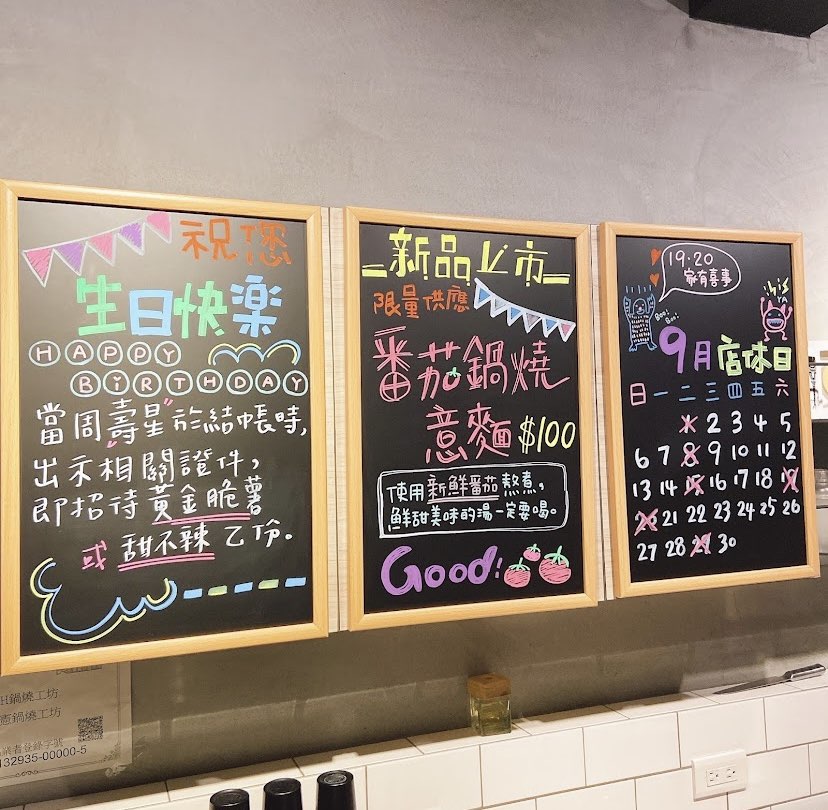 祝您
生日快樂
HAPPY
BIRTHDAY
當周"壽星"於結帳時,
出示相關證件,
即招待黃金脆薯
或 甜不辣 乙份。
新品上市
限量供應
番茄鍋燒
意麵 $100
使用新鮮番茄熬煮,
鮮甜美味的湯一定要喝。
Good!
19.20
家有喜事
9月店休日
日 一 二 三 四 五 六
2 3 4 5
6 7 8 9 10 11 12
13 14 15 16 17 18 19
20 21 22 23 24 25 26
27 28 29 30
鍋燒工坊
憲鍋燒工坊
業者登錄字號
132935-00000-5